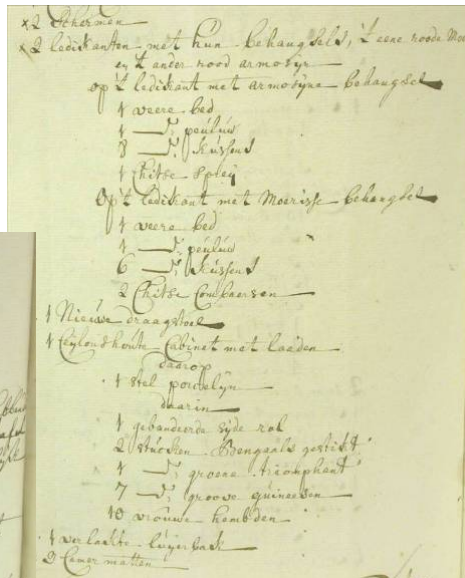 x 2 Schermen
x 2 ledikanten met hun behangsels, 't eene roode Moe
en 't ander rood armosyn
op 't ledikant met armosyne behangsel
1 veere bed
1 —d;, peuluw
8 —d;, kussens
1 Chitse sprey
Op 't ledikant met Moerisse behangsel
1 veere bed
1 —d;, peuluw
6 —d;, kussens
2 Chitse Combaersen
1 Nieuwe draagstoel
1 Ceylonshoute Cabinet met laaden
daarop
1 stel porcelyn
daarin
1 gebandeerde syde rok
2 stucken Bengaals gestikt
1 —d;, groene triomphant
7 —d;, groove guineesen
10 vrouwe hembden
1 verlackte luyerback
2 Camer matten